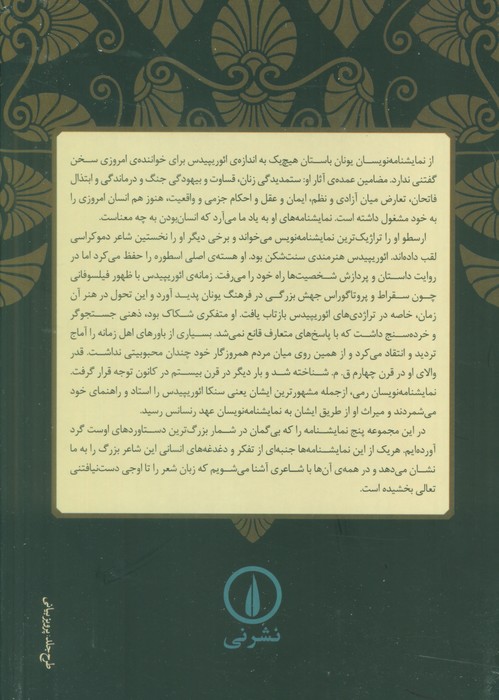 از نمایشنامه‌نویسان یونان باستان هیچ‌یک به اندازه‌ی ائوریپیدس برای خواننده‌ی امروزی سخن
گفتنی ندارد. مضامین عمده‌ی آثار او: ستمدیدگی زنان، قساوت و بیهودگی جنگ و درماندگی و ابتذال
فاتحان، تعارض میان آزادی و نظم، ایمان و عقل و احکام جزمی و واقعیت، هنوز هم انسان امروزی را
به خود مشغول داشته است. نمایشنامه‌های او به یاد ما می‌آرد که انسان‌بودن به چه معناست.
ارسطو او را تراژیک‌ترین نمایشنامه‌نویس می‌خواند و برخی دیگر او را نخستین شاعر دموکراسی
لقب داده‌اند. ائوریپیدس هنرمندی سنت‌شکن بود. او هسته‌ی اصلی اسطوره را حفظ می‌کرد اما در
روایت داستان و پردازش شخصیت‌ها راه خود را می‌رفت. زمانه‌ی ائوریپیدس با ظهور فیلوفانی
چون سقراط و پروتاگوراس جهش بزرگی در فرهنگ یونان پدید آورد و این تحول در هنر آن
زمان، خاصه در تراژدی‌های ائوریپیدس بازتاب یافت. او متفکری شکاک بود، ذهنی جستجوگر
و خرده‌سنج داشت که با پاسخ‌های متعارف قانع نمی‌شد. بسیاری از باورهای اهل زمانه را آماج
تردید و انتقاد می‌کرد و از همین روی میان مردم همروزگار خود چندان محبوبیتی نداشت. قدر
والای او در قرن چهارم ق. م. شناخته شد و بار دیگر در قرن بیستم در کانون توجه قرار گرفت.
نمایشنامه‌نویسان رمی، ازجمله مشهورترین ایشان یعنی سنکا ائوریپیدس را استاد و راهنمای خود
می‌شمردند و میراث او از طریق ایشان به نمایشنامه‌نویسان عهد رنسانس رسید.
در این مجموعه پنج نمایشنامه را که بی‌گمان در شمار بزرگ‌ترین دستاوردهای اوست گرد
آورده‌ایم. هریک از این نمایشنامه‌ها جنبه‌ای از تفکر و دغدغه‌های انسانی این شاعر بزرگ را به ما
نشان می‌دهد و در همه‌ی آن‌ها با شاعری آشنا می‌شویم که زبان شعر را تا اوجی دست‌نیافتنی
تعالی بخشیده است.
نشر نی
طرح جلد: پرویز بیانی